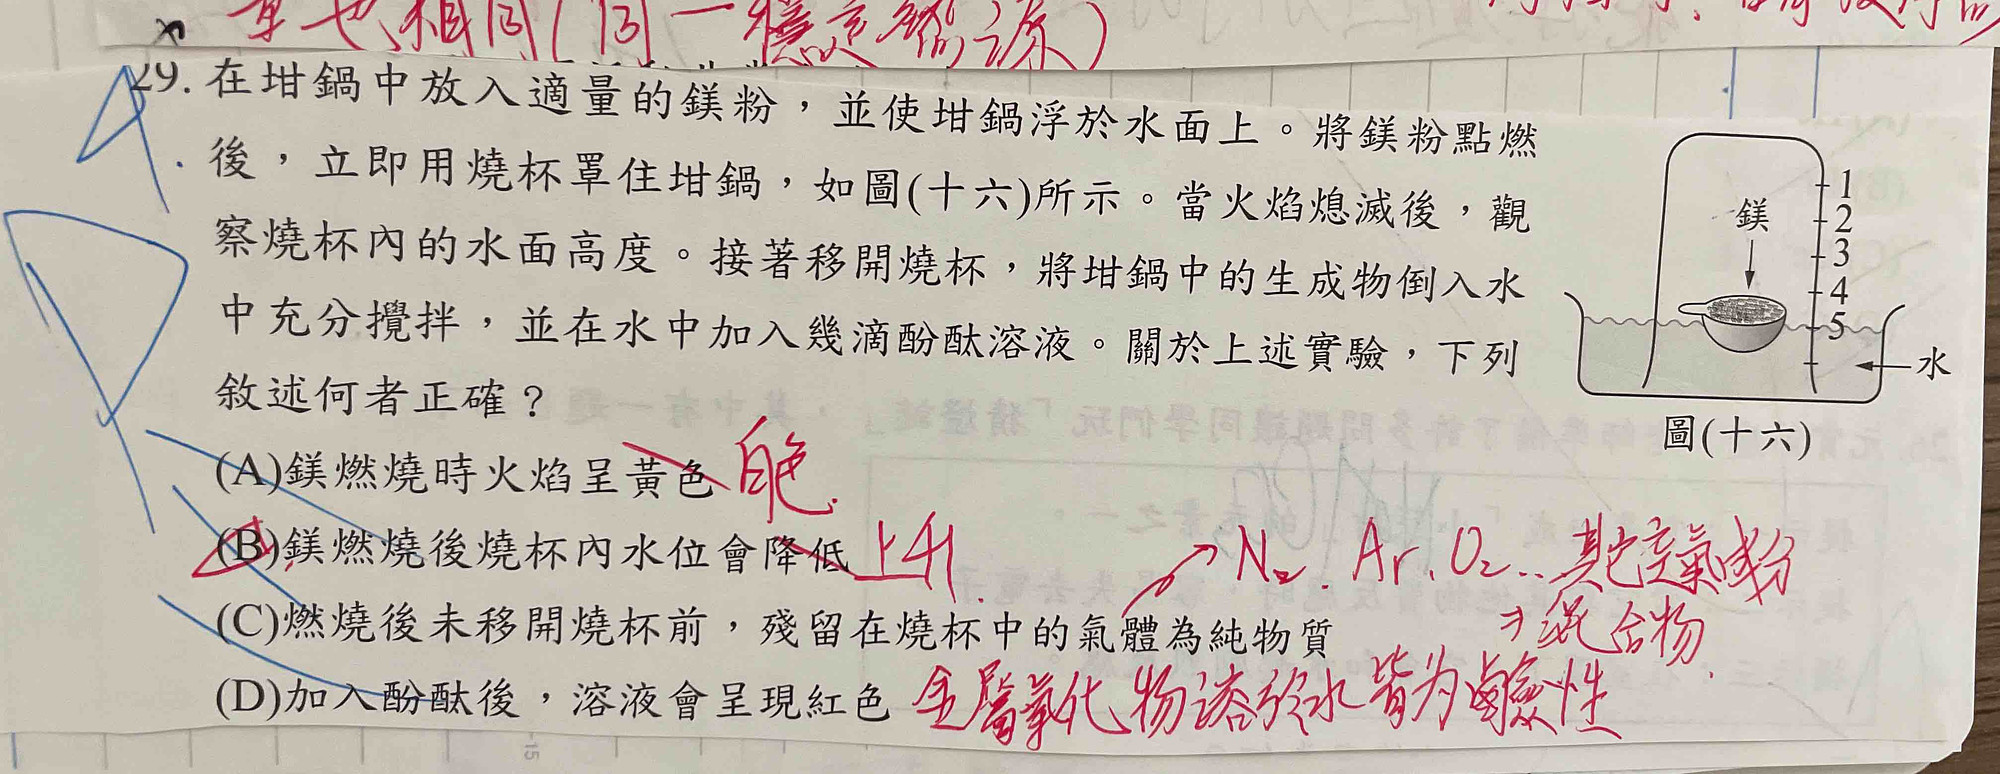 草也相同(同一穩定電源)
29. 在坩鍋中放入適量的鎂粉，並使坩鍋浮於水面上。將鎂粉點燃
後，立即用燒杯罩住坩鍋，如圖(十六)所示。當火焰熄滅後，觀
察燒杯內的水面高度。接著移開燒杯，將坩鍋中的生成物倒入水
中充分攪拌，並在水中加入幾滴酚酞溶液。關於上述實驗，下列
敘述何者正確？
鎂
1
2
3
4
5
水
圖(十六)
(A)鎂燃燒時火焰呈黃色 白色.
(B)鎂燃燒後燒杯內水位會降低 上升.
(C)燃燒後未移開燒杯前，殘留在燒杯中的氣體為純物質
N₂. Ar. O₂... 其它空氣成分
⇒混合物.
(D)加入酚酞後，溶液會呈現紅色 金屬氧化物溶於水皆為鹼性